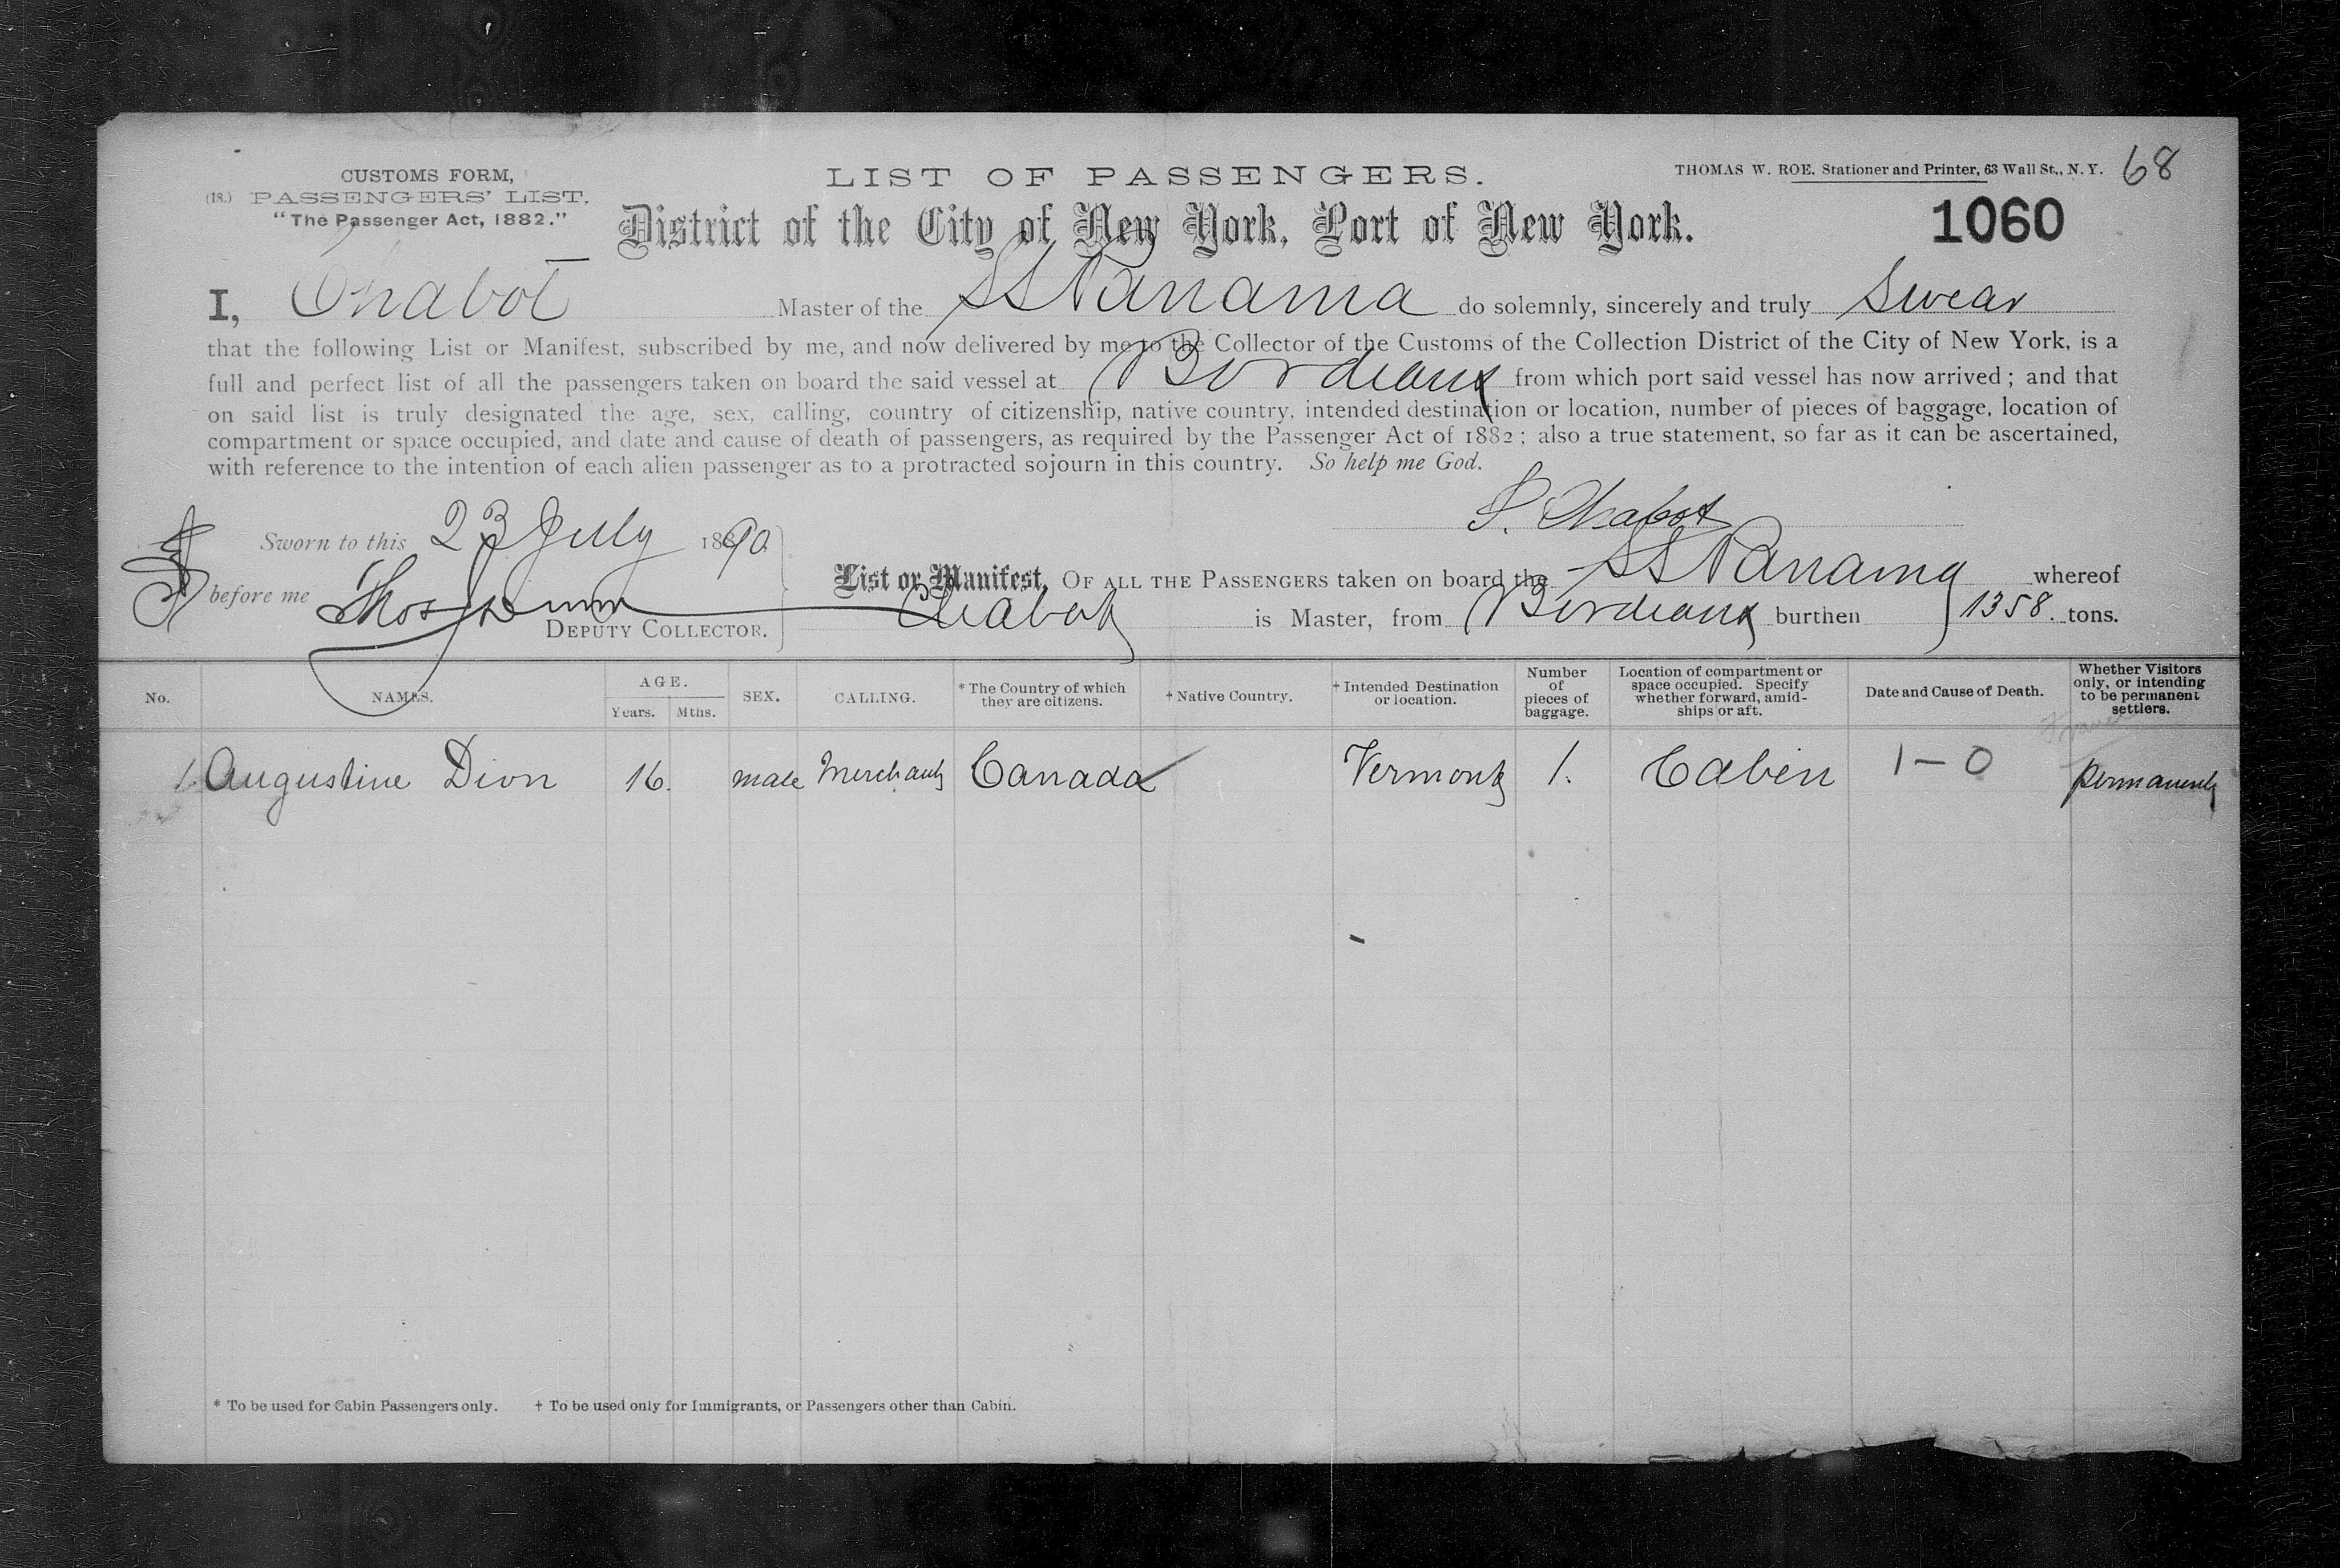 CUSTOMS FORM,
(18.) PASSENGERS' LIST,
"The Passenger Act, 1882."
LIST OF PASSENGERS.
THOMAS W. ROE, Stationer and Printer, 63 Wall St., N.Y.
68
District of the City of New York, Port of New York.
1060
I, Chabot Master of the SS Panama do solemnly, sincerely and truly swear
that the following List or Manifest, subscribed by me, and now delivered by me to the Collector of the Customs of the Collection District of the City of New York, is a
full and perfect list of all the passengers taken on board the said vessel at Bordeaux from which port said vessel has now arrived; and that
on said list is truly designated the age, sex, calling, country of citizenship, native country, intended destination or location, number of pieces of baggage, location of
compartment or space occupied, and date and cause of death of passengers, as required by the Passenger Act of 1882; also a true statement, so far as it can be ascertained,
with reference to the intention of each alien passenger as to a protracted sojourn in this country. So help me God.
S. Chabot
Sworn to this 23 July 1890
before me Thos Dunn
DEPUTY COLLECTOR.
List or Manifest, OF ALL THE PASSENGERS taken on board the SS Panama whereof
Chabot is Master, from Bordeaux burthen 1358. tons.
No. NAMES. AGE. Years. Mths. SEX. CALLING. * The Country of which they are citizens. † Native Country. † Intended Destination or location. Number of pieces of baggage. Location of compartment or space occupied. Specify whether forward, amidships or aft. Date and Cause of Death. Whether Visitors only, or intending to be permanent settlers.
1. Augustine Dion 16. male Merchant Canada Vermont 1. Cabin 1-0 permanent
* To be used for Cabin Passengers only. † To be used only for Immigrants, or Passengers other than Cabin.